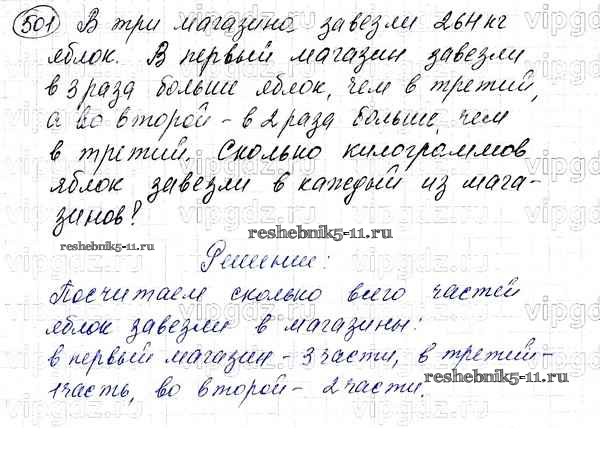 501 В три магазина завезли 264 кг
яблок. В первый магазин завезли
в 3 раза больше яблок, чем в третий,
а во второй - в 2 раза больше, чем
в третий. Сколько килограммов
яблок завезли в каждый из мага-
зинов?
reshebnik5-11.ru
reshebnik5-11.ru
Решение:
Посчитаем сколько всего частей
яблок завезли в магазины:
в первый магазин - 3 части, в третий -
1 часть, во второй - 2 части.
reshebnik5-11.ru